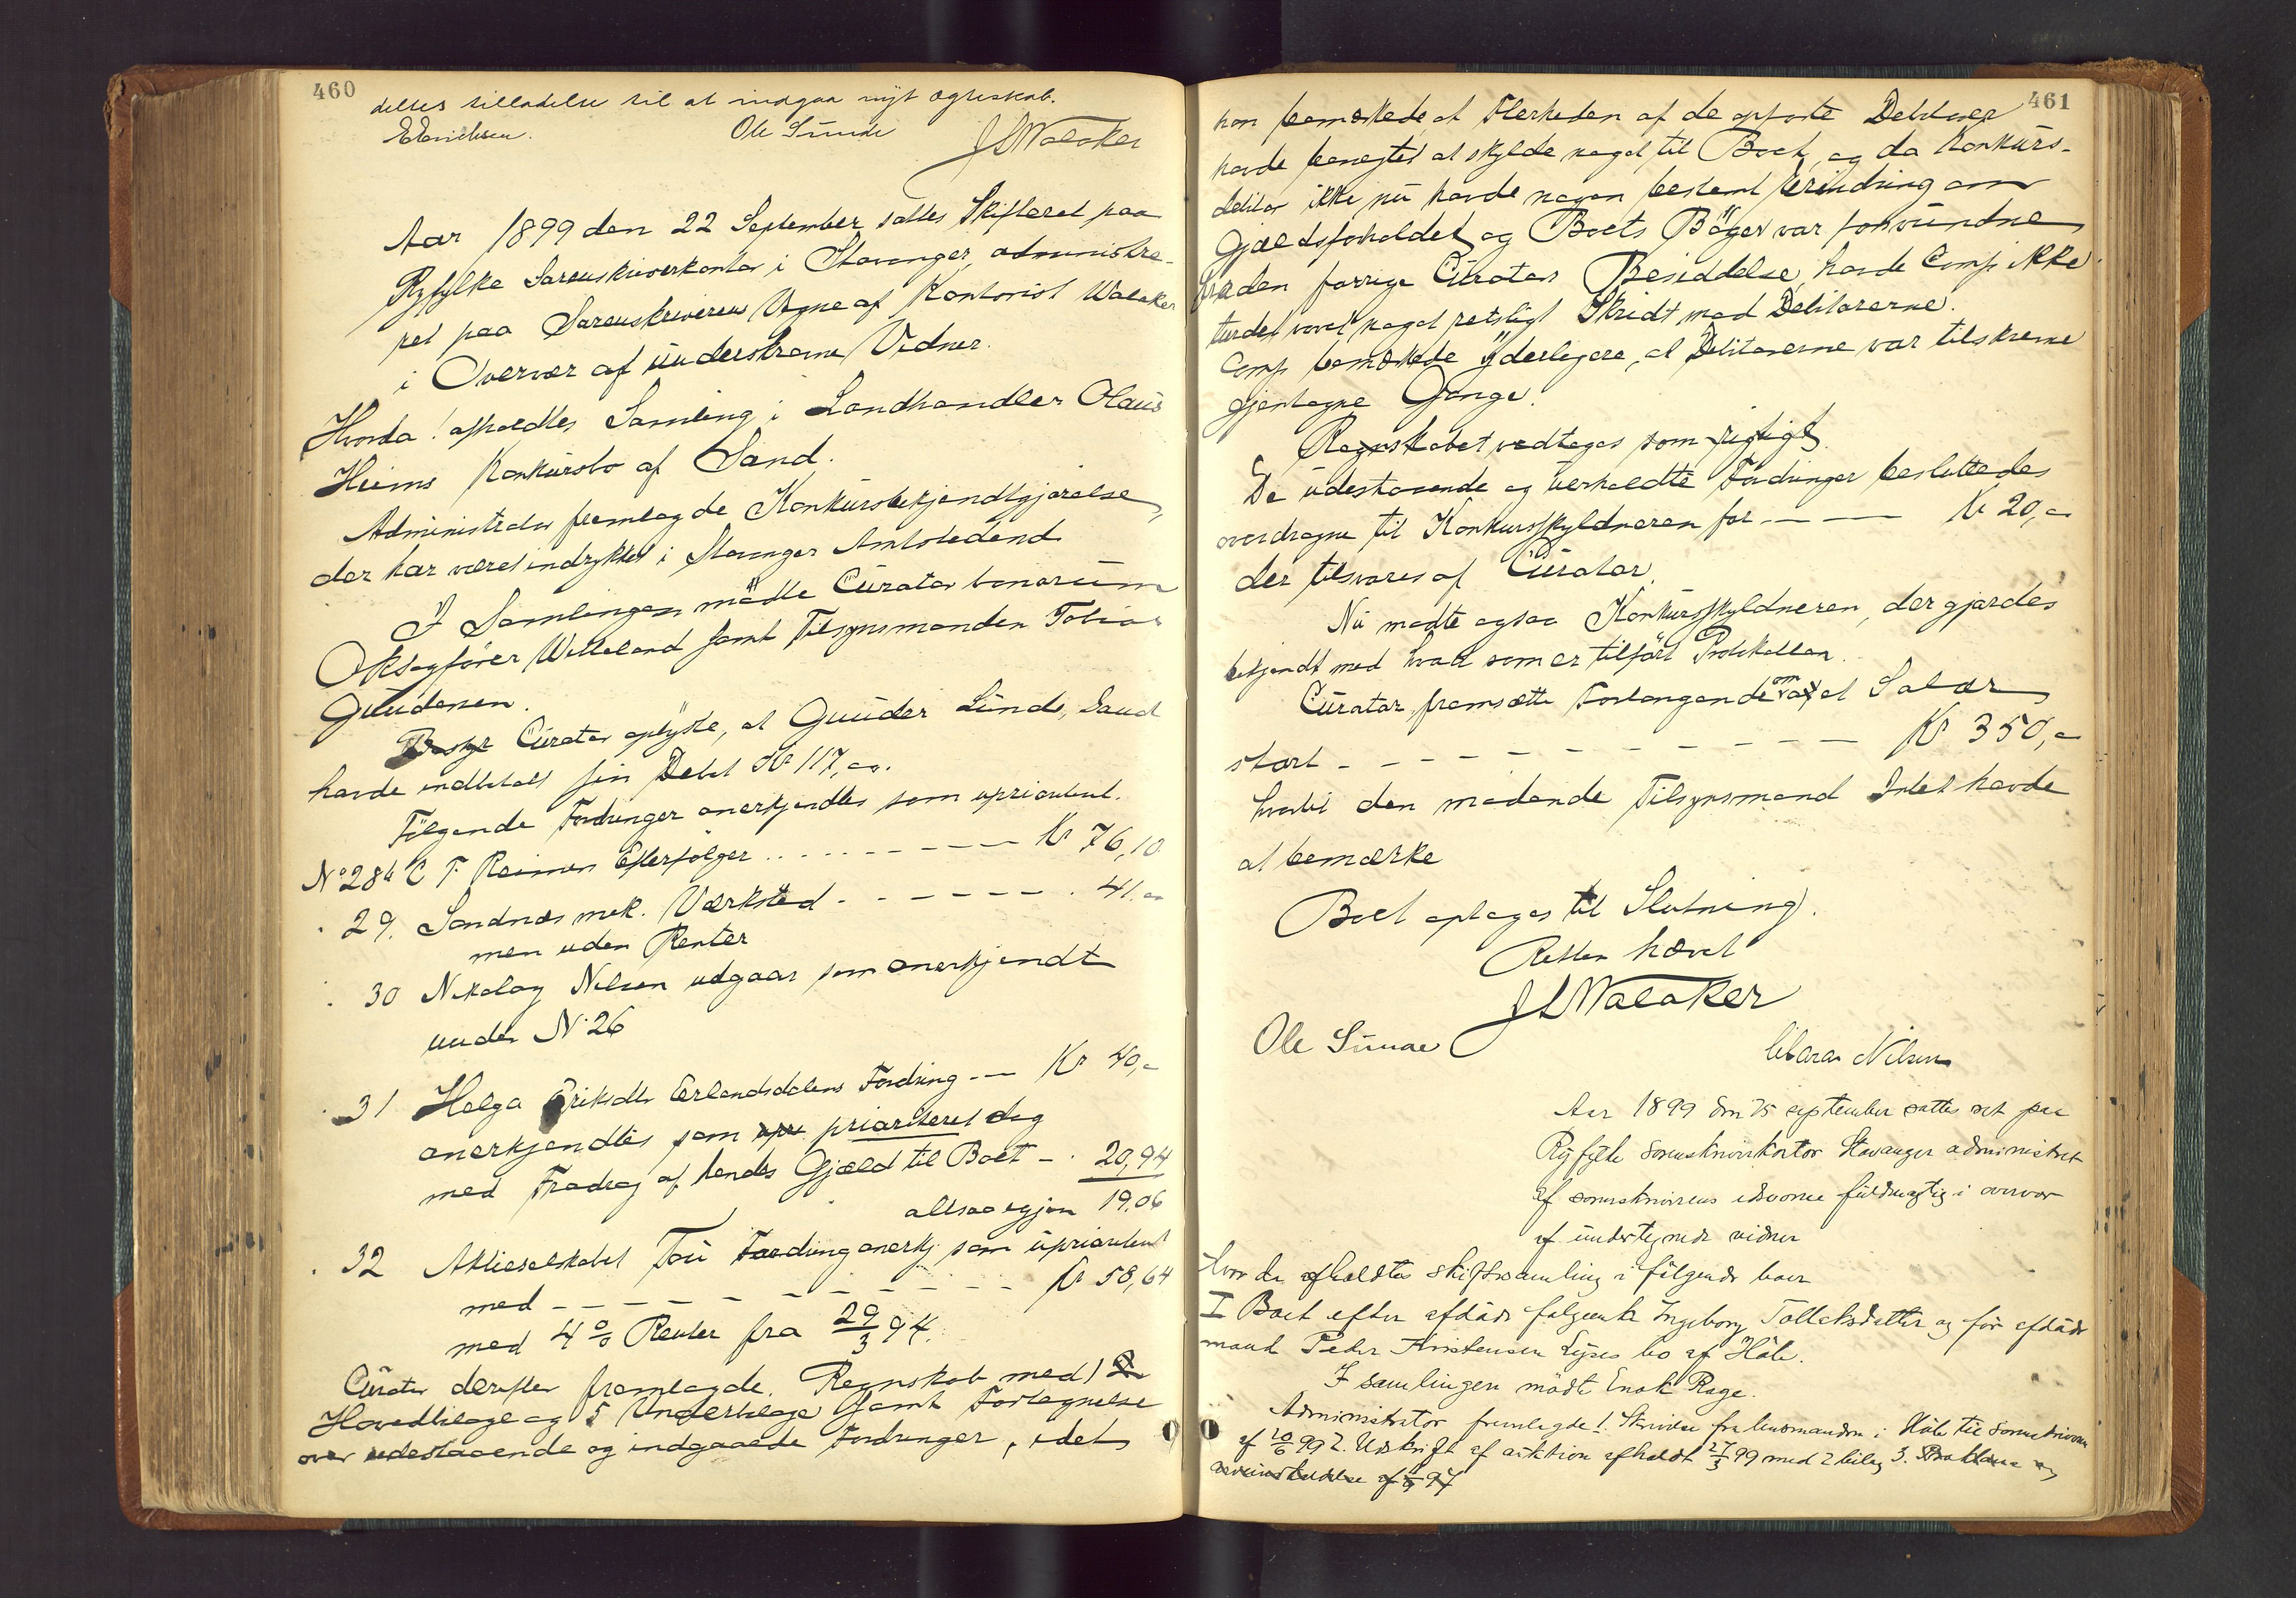 460
deltes tilladelse til at indgaa nyt ægteskab.
E. Erichsen. Ole Sunde
JLWalaker
Aar 1899 den 22 September sattes Skifteret paa
Ryfylke Sorenskriverkontor i Stavanger, administre-
ret paa Sorenskriverens Vegne af Kontorist Walaker
i Overvær af underskrevne Vidner.
Hvorda! afholdtes Samling i Landhandler Olaus
Heims Konkursbo af Sand.
Administrator fremlagde Konkursbekjendtgjørelse,
der har været indrykket i Stavanger Amtstidend
I Samlingen mødte Curator bonorum
Oksagfører Wetteland samt Tilsynsmanden Tobias
Gundersen.
Curator oplyste, at Gunder Lunde, Sand
havde indbetalt sin Debet Kr 117,00.
Følgende Fordringer anerkjendtes som uprioritert.
No 28b C F Reimers Efterfølger . . . . . . — — — Kr 76,10
" 29. Sandnæs mek. Værksted . - - - - - . 41.00
men uden Renter
" 30 Nikolay Nilsen udgaar som anerkjendt
under No 26
" 31 Helga Eriksdtr Erlandsdalens Fordring — — Kr 40,-
anerkjendtes som upr prioriteret dog
med Fradrag af hendes Gjæld til Boet - . 20,94
altsaa igjen 19.06
" 32 Aktieselskabet Tou Fordring anerkj. som uprioritert
med — — — — — — — Kr 58,64
med 4 % Renter fra 29/3 94.
Curator derefter fremlagde. Regnskab med 12
Hovedbilage og 5 Underbilage samt Fortegnelse
over udestaaende og indgaaede Fordringer, idet
461
han bemærkede, at Flerheden af de opførte Debitorer
havde benegtet at skylde noget til Boet, og da Konkurs-
debitor ikke nu havde nogen bestemt Erindring om
Gjældsforholdet og Boets Bøger var forsvundne
fra den forrige Curators Besiddelse, havde Comp ikke
turdet vovet noget retsligt Skridt mod Debitorerne.
Comp bemærkede yderligere, at Debitorerne var tilskrevne
gjentagne Gange.
Regnskabet vedtages som rigtigt.
De udestaaende og uerholdte Fordringer besluttedes
overdragne til Konkursskyldneren for — — — Kr 20,00
der tilsvares af Curator.
Nu mødte ogsaa Konkursskyldneren, der gjordes
bekjendt med hvad som er tilført Protokollen.
Curator fremsatte Forlangende om et Salær
stort - - - - - - - - - Kr 350,00
hvortil den mødende Tilsynsmand Intet havde
at bemærke
Boet optages til Slutning.
Retten hævet
JLWalaker
Ole Sunde Clara Nilsen
Aar 1899 den 25 september sattes ret paa
Ryfylke sorenskriverkontor Stavanger administret
af sorenskriverens edsvorne fuldmægtig i overvær
af undertegnede vidner
Hvor da afholdtes skiftesamling i følgende boer
I Boet efter afdøde følgeenke Ingeborg Tollaksdatter og før afdøde
mand Peder Kristensen Lyses bo af Høle.
I samlingen mødte Enok Rage.
Administrator fremlagde 1. Skrivelse fra lensmanden i Høle til sorenskriveren
af 20/6 99 2. Udskrift af auktion afholdt 27/3 99 med 2 bilag 3.